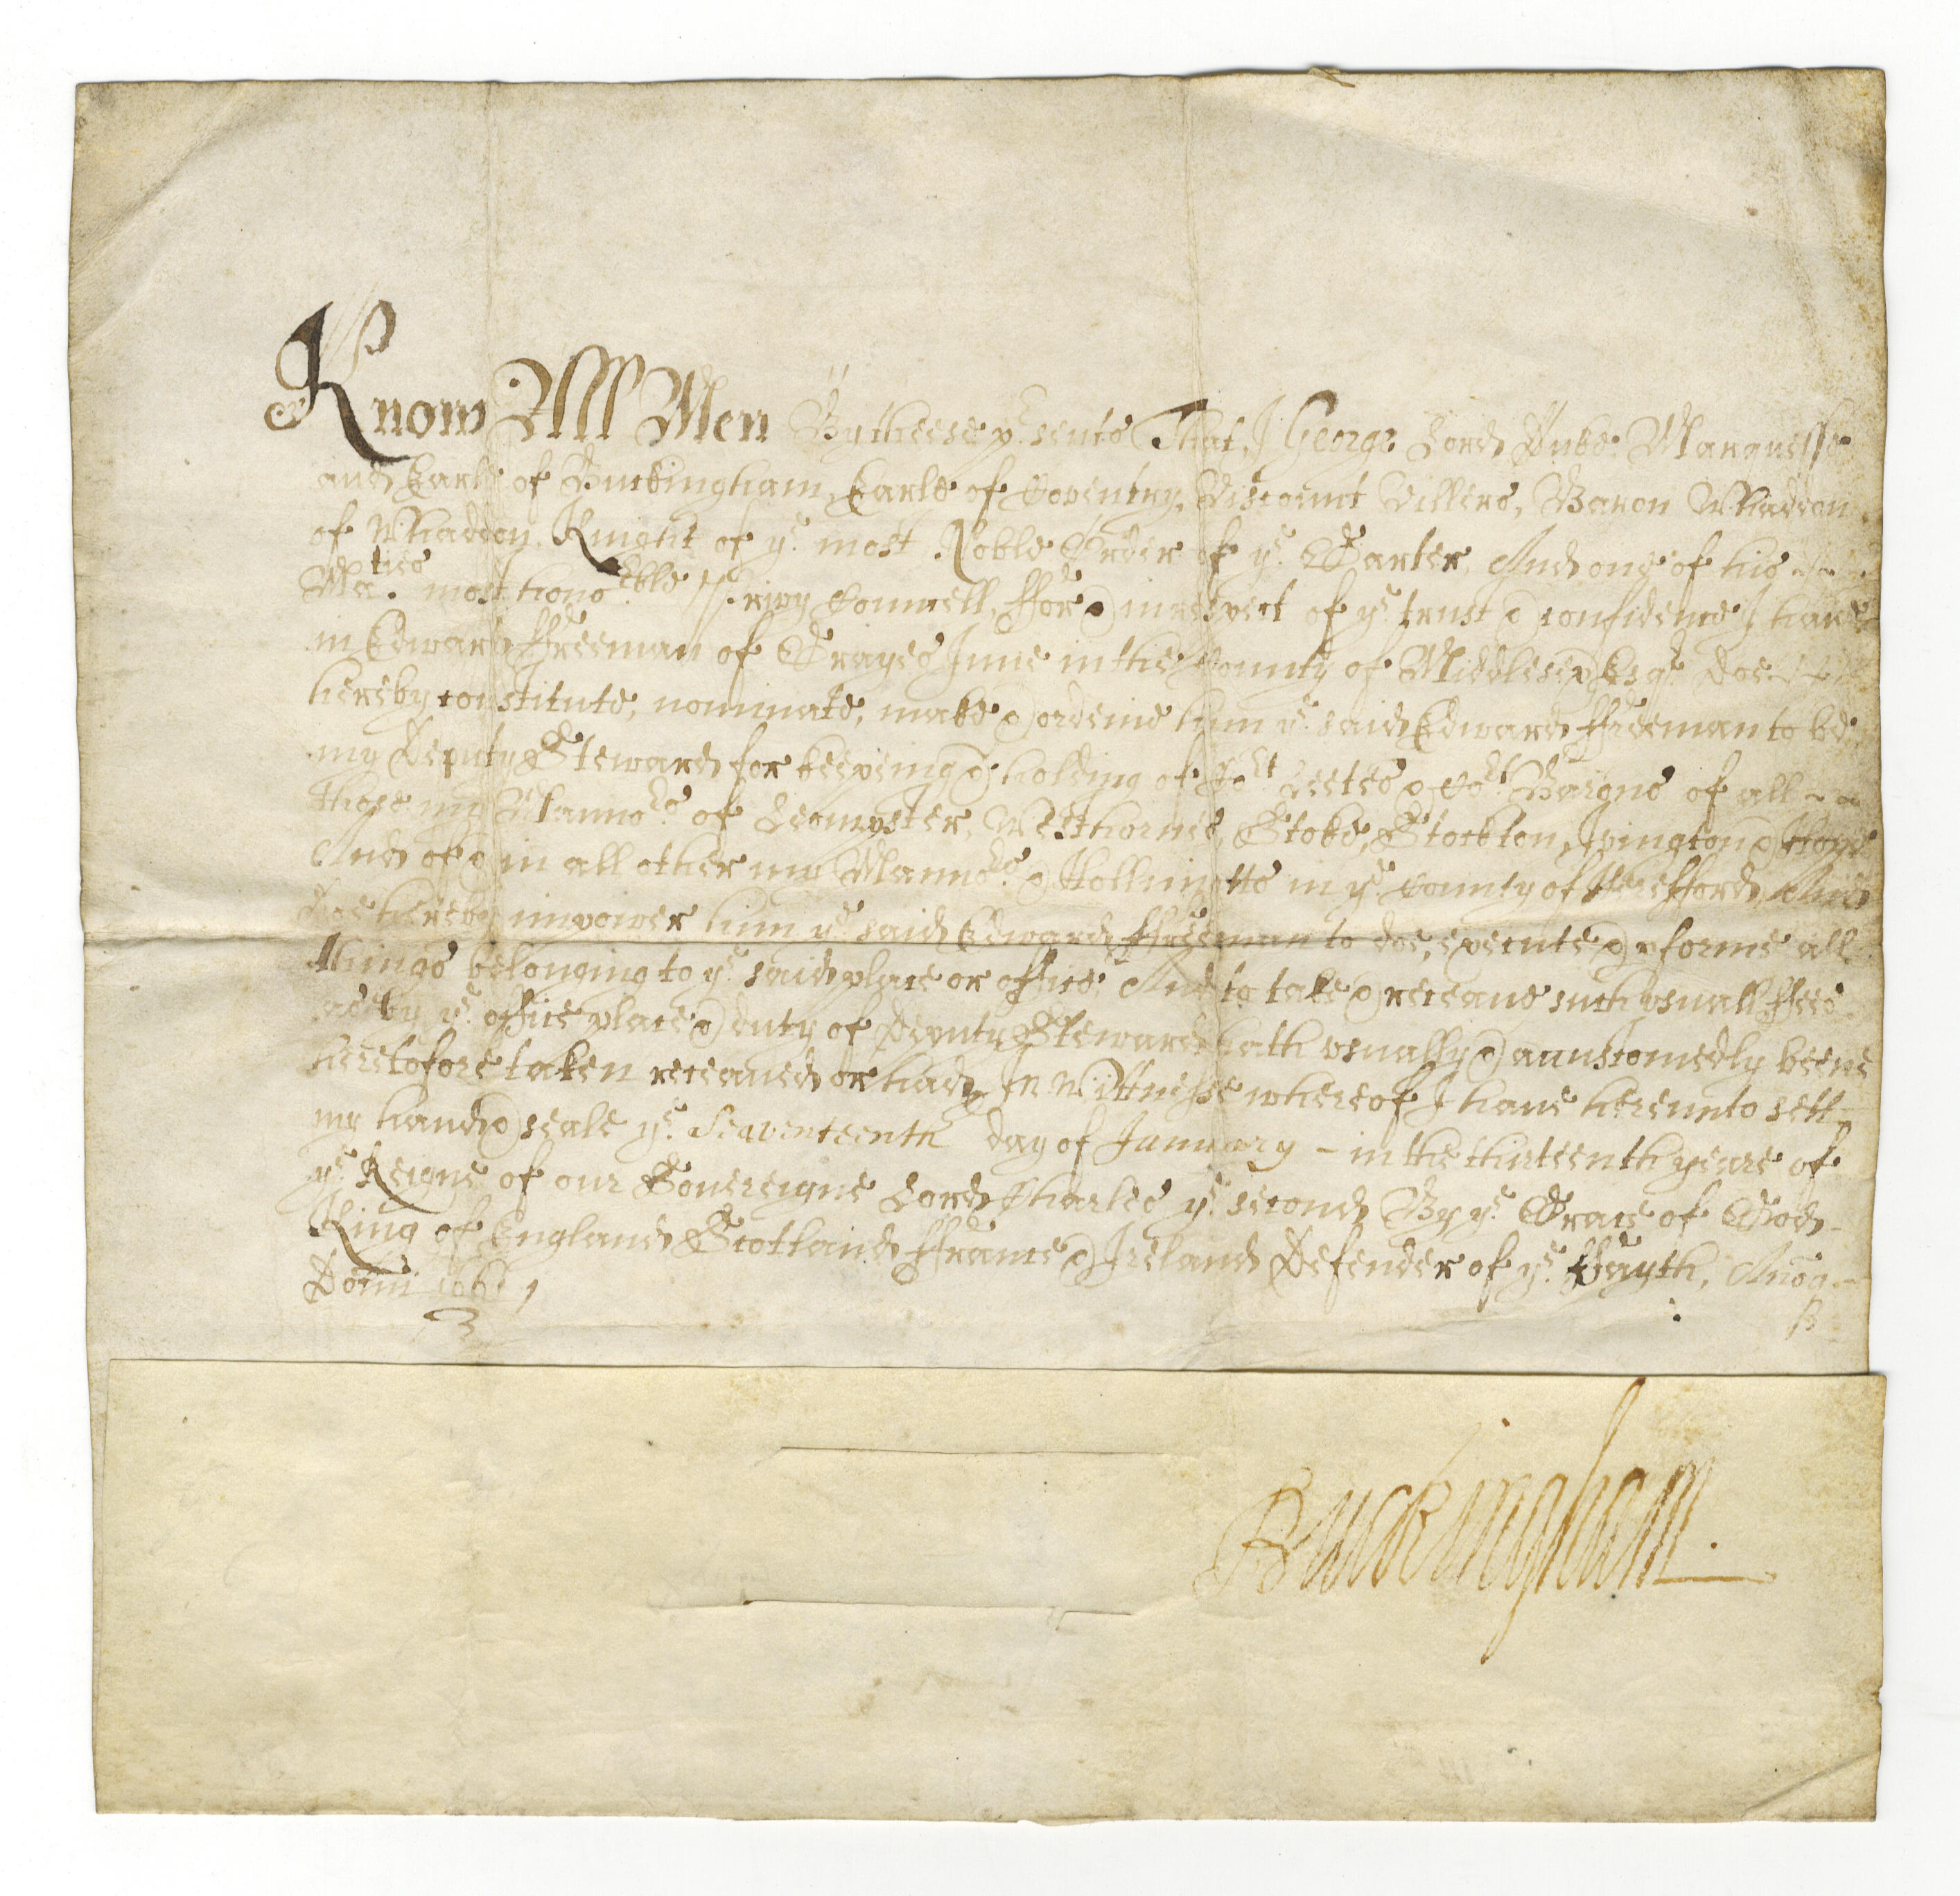 Know All Men By theese p^rsents That I George Lord Duke Marquesse
and Earle of Buckingham, Earle of Coventry, Viscount Villers, Baron Whaddon
of Whaddon, Knight of y^e most Noble Order of y^e Garter, And one of his
Ma^ties most hono^rble Privy Councell, ffor & in respect of y^e trust & confidence I haue
in Edward ffreeman of Grayes Inne in the County of Middlesex Esq^r doe
hereby constitute, nominate, make & ordeine him y^e said Edward ffreeman to be
my Deputy Steward for keepeing & holding of Co^rt Leetes & Co^rt Barons of all
those my Manno^rs of Leompster, Westhorne, Stoke, Stockton, Ivington & Hope
And of & in all other my Manno^rs & in y^e County of Herefford, And
doe hereby impower him y^e said Edward ffreeman to doe, execute & pforme all
things belonging to y^e said place or office, And to take & receaue such vsuall ffees
as by y^e office place & duty of Deputy Steward hath vsually & accustomedly beene
heretofore taken receaued or had, In Wittnesse whereof I haue hereunto sett
my hand & seale y^e Seaventeenth day of January - in the thirteenth yeare of
y^e Reigne of our Souereigne Lord Charles y^e second By y^e Grace of God
King of England Scotland ffrance & Ireland Defender of y^e ffayth, Anoq
Domi 1661
Buckingham.